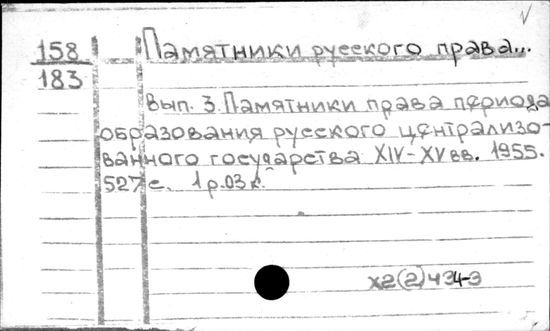 158 Памятники русского права...
183
Вып. 3. Памятники права периода
образования русского централизо-
ванного государства XIV-XV вв. 1955.
527 с. 1 р. 03 к.
х2(2)434-3